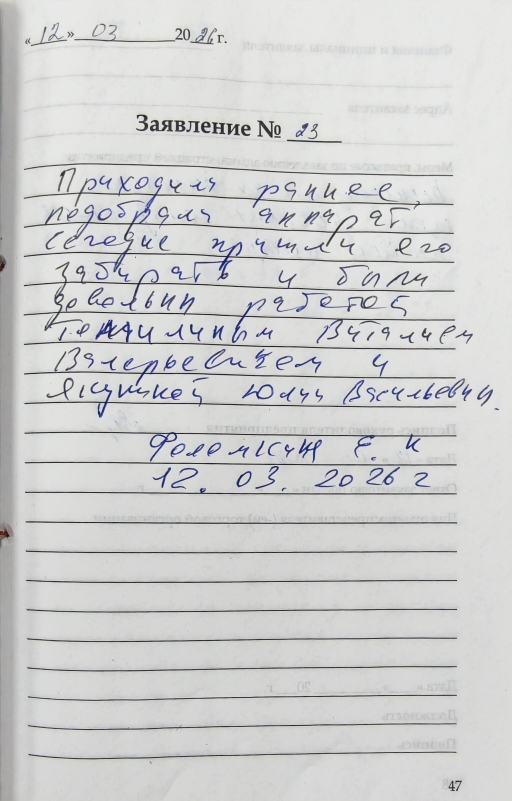 «12» 03 2026 г.
Заявление № 23
Приходили раннее,
подобрали аппарат,
сегодне пришли его
забирать и были
довольны работой
Виталием
Валерьевичем и
Якушкой Юлии Васильевны.
Е. К
12. 03. 2026 г
47